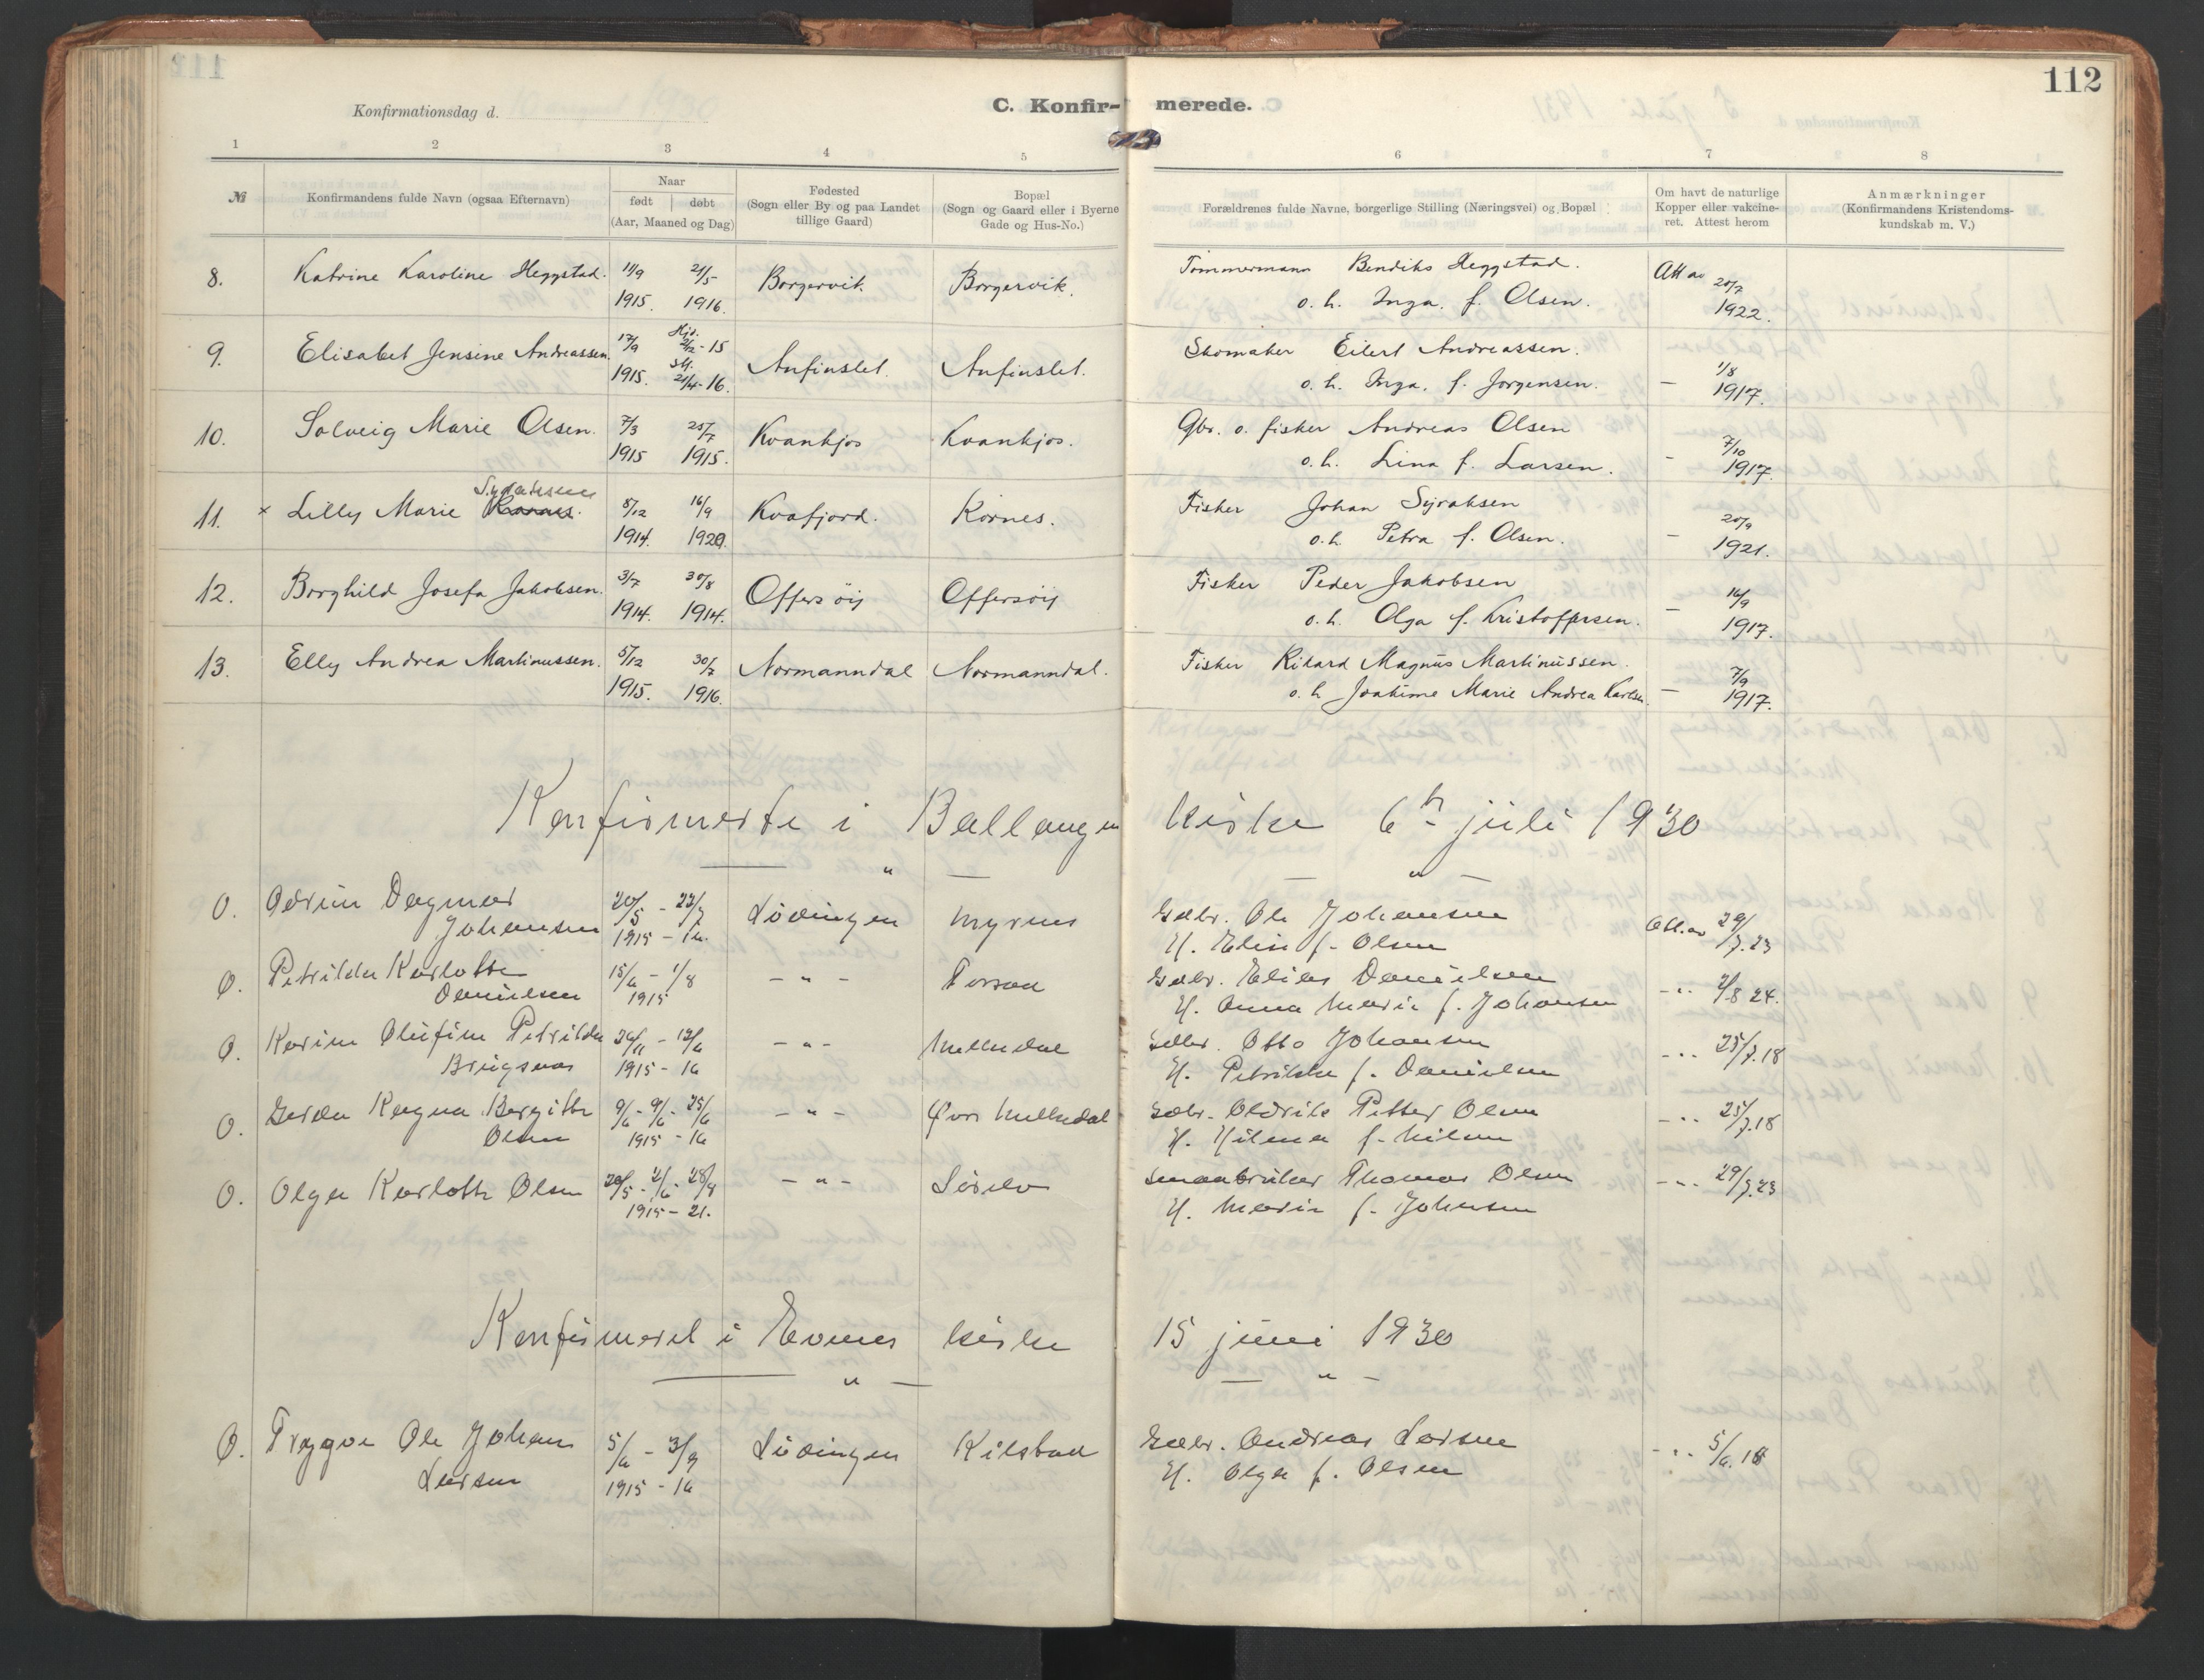 112
Konfirmationsdag d.
C. Konfir- merede.
1 2 3 4 5 6 7 8
№ Konfirmandens fulde Navn (ogsaa Efternavn)
Naar
født døbt
(Aar, Maaned og Dag)
Fødested
(Sogn eller By og paa Landet
tillige Gaard)
Bopæl
(Sogn og Gaard eller i Byerne
Gade og Hus-No.)
Forældrenes fulde Navne, borgerlige Stilling (Næringsvei) og Bopæl
Om havt de naturlige
Kopper eller vakcine-
ret. Attest herom
Anmærkninger
(Konfirmandens Kristendoms-
kundskab m. V.)
8. Katrine Karoline Heggstad. 11/9 21/5 Borgervik Borgervik. Tømmermann Bendiks Heggstad. Att av 20/7
1915. 1916. o. h. Inga. f. Olsen. 1922.
9. Elisabet Jensine Andreassen. 17/9 Hjd. 2/12-15 Anfinslet. Anfinslet. Skomaker Eilert Andreassen. 1/8
1915. st. 21/4-16. o. h. Inga. f. Jørgensen. - 1917.
10. Solveig Marie Olsen. 7/3 25/7 Kvankjos Kvankjos. Gbr. o. fisker Andreas Olsen 7/10
1915 1915. o. h. Lina f. Larsen. - 1917.
Syraksen
11. × Lilly Marie Kornes. 8/12 16/9 Kvafjord. Kornes. Fisker Johan Syraksen 20/9
1914. 1920. o. h. Petra f. Olsen. - 1921.
12. Borghild Josefa Jakobsen. 3/7 30/8 Offersøy Offersøy Fisker Peder Jakobsen 14/9
1914. 1914. o. h. Olga f. Kristoffersen. - 1917.
13. Elly Andrea Martinussen. 5/12 30/7 Normanndal Normanndal. Fisker Rikard Magnus Martinussen. 7/9
1915. 1916. o. h. Joakime Marie Andrea Karlsen. - 1917.
Konfirmerte i Ballangen kirke 6te juli 1930
— " — — " —
O. Odrun Dagmar 20/5 - 23/7 Lødingen Myrnes Gdbr. Ole Johansen Att. av 29/7.23
Johansen 1915 - 16. H. Elise f. Olsen
O. Petrikke Karlotte 15/6 - 1/8 - " - Forraa Gdbr. Elias Danielsen - " 2/8 24.
Danielsen 1915 H. Anna Marie f. Johansen
O. Karine Olufine Petrikke 26/11 - 12/6 - " - Melkedal Gdbr. Otto Johansen - " 25/7.18
1915 - 16 H. Petrikke f. Danielsen
O. Gerda Ragna Bergitte 9/6 - 9/6 - 25/6 - " - Øvre Melkedal Gdbr. Aldrik Petter Olsen - " 25/7.18
Olsen 1915 - 16 H. Hilma f. Nilsen
O. Olga Karlotte Olsen 20/5 - 2/6 - 28/8 - " - Sørelv Smaabruker Thomas Olsen - " 29/7.23
1915 - 21. H. Marie f. Johnsen
Konfirmeret i Evenes kirke 15 juni 1930
— " — — " —
O. Trygve Ole Johan 5/6 - 3/9 Lødingen Kilstad Gdbr. Andreas Larsen - " 5/6.18
Larsen 1915 - 16 H. Olga f. Olsen